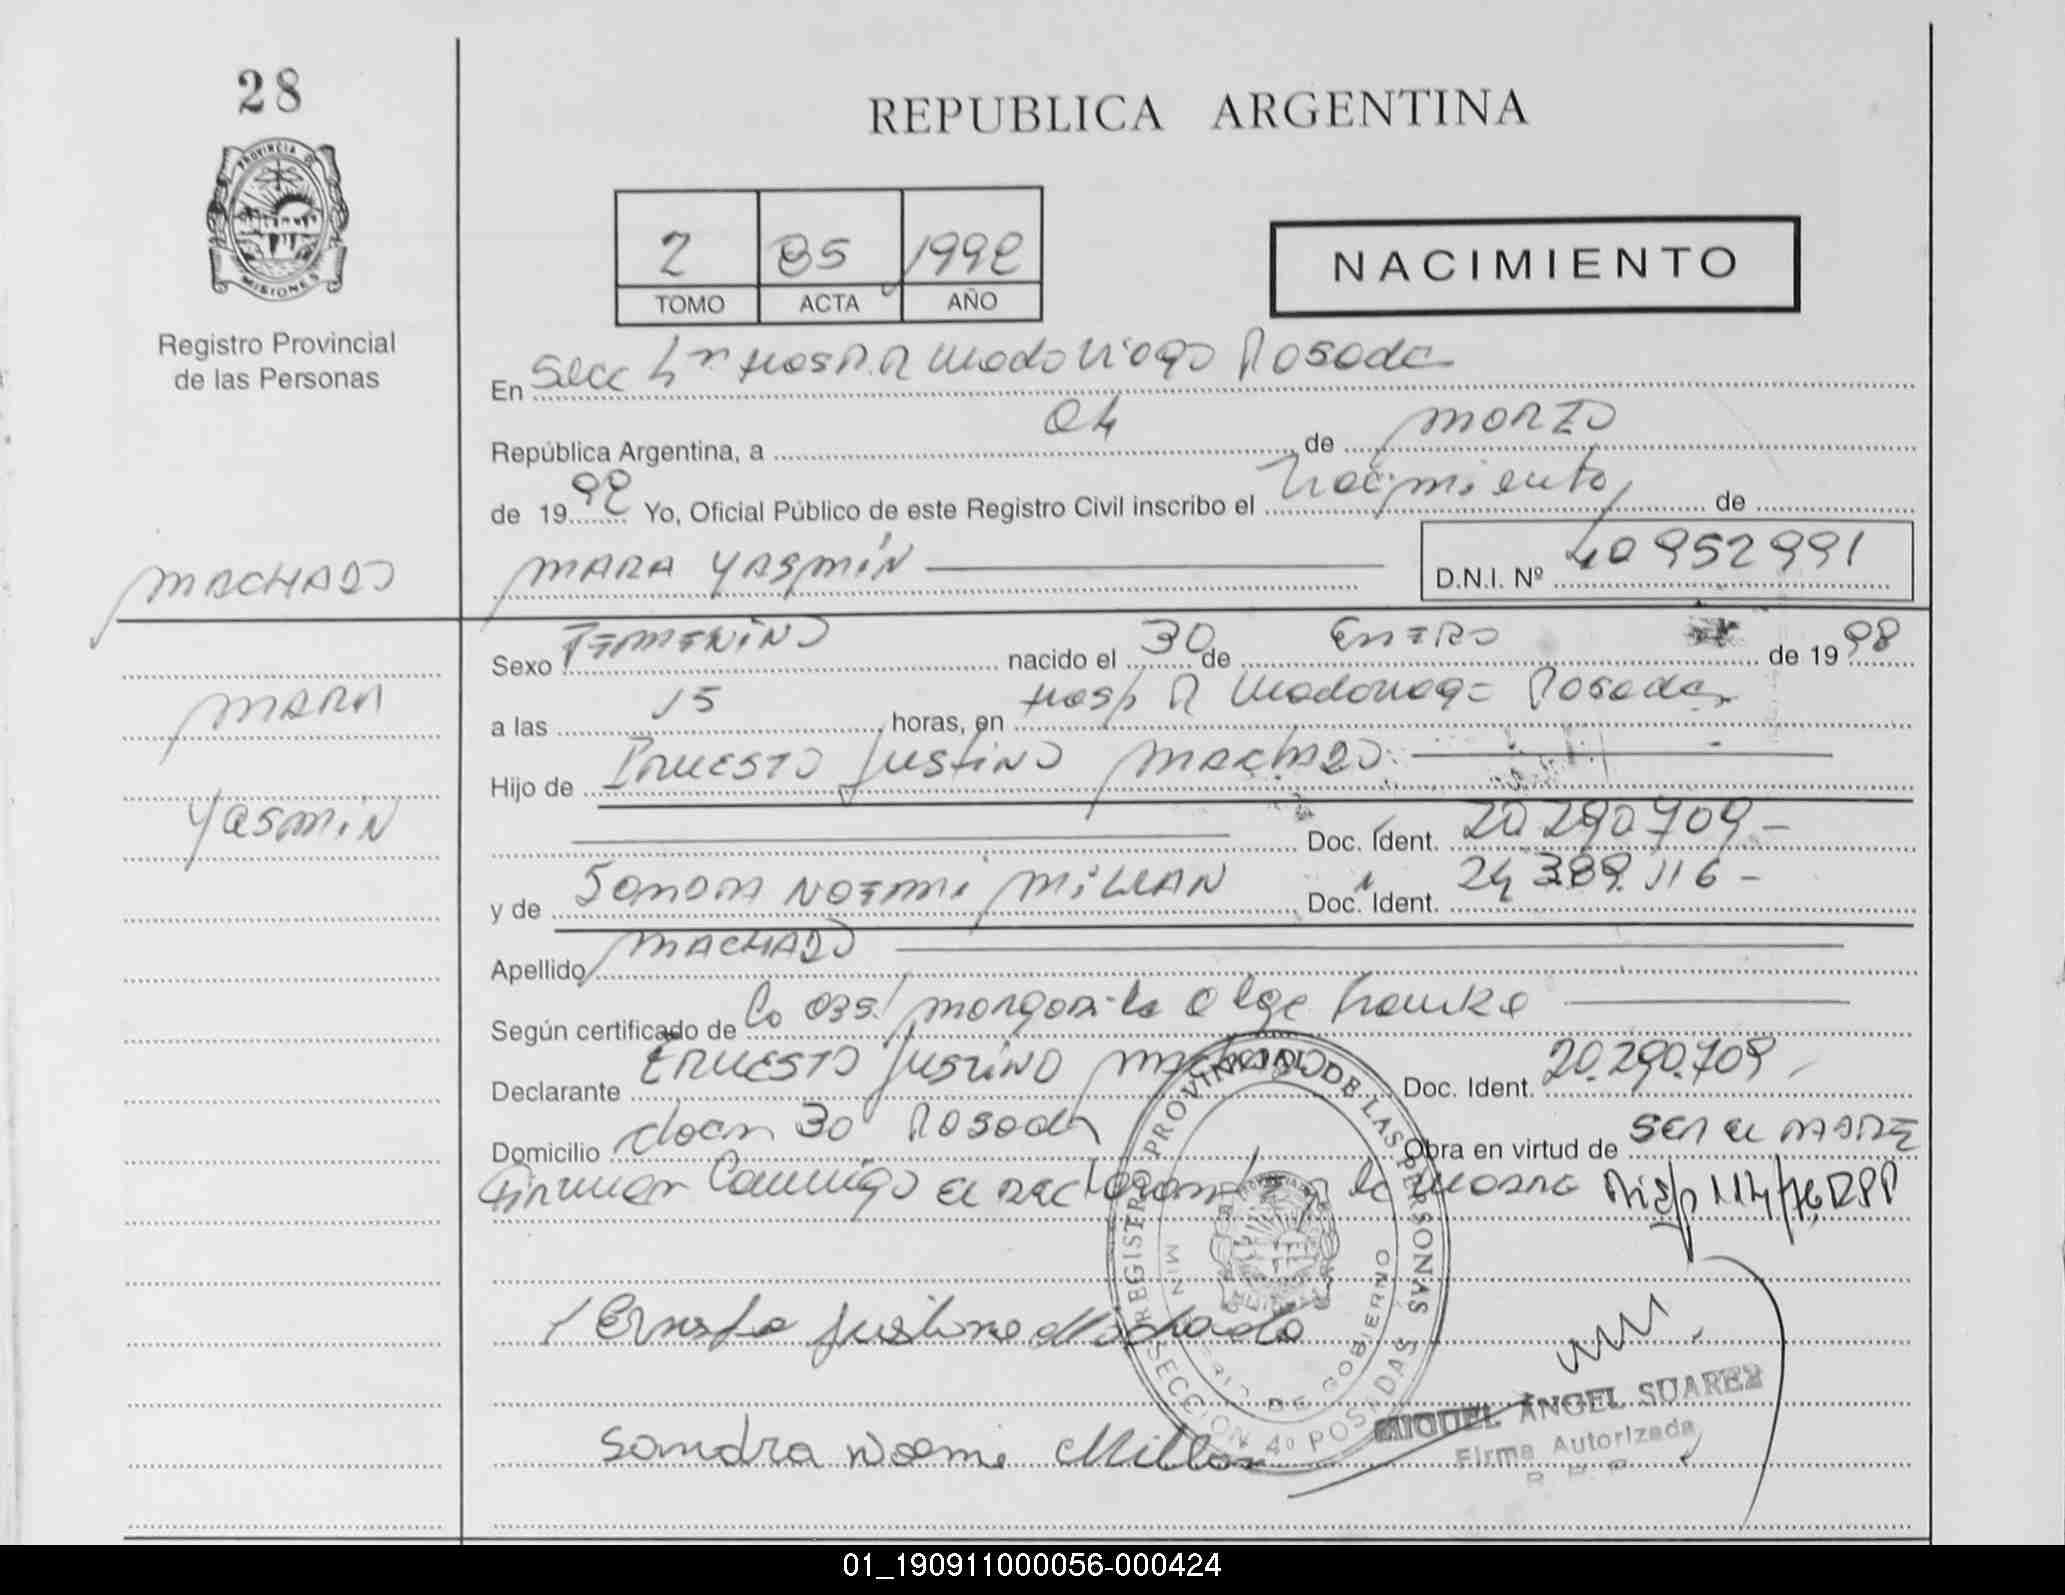 28
REPUBLICA ARGENTINA
PROVINCIA DE
MISIONES
Registro Provincial
de las Personas
2 85 1998
TOMO ACTA AÑO
NACIMIENTO
En Secc 4ª Hosp. R Madariaga Posadas
República Argentina, a 04 de MARZO
de 1998 Yo, Oficial Público de este Registro Civil inscribo el Nacimiento de
MACHADO
MARA YASMIN
D.N.I. Nº 40952991
MARA
YASMIN
Sexo FEMENINO nacido el 30 de ENERO de 1998
a las 15 horas, en Hosp R Madariaga Posadas
Hijo de ERNESTO JUSTINO MACHADO
Doc. Ident. 20.290.709
y de SANDRA NOEMI MILLAN Doc. Ident. 24.389.116
Apellido MACHADO
Según certificado de la obs. Margarita Olga Franke
Declarante ERNESTO JUSTINO MACHADO Doc. Ident. 20.290.709
Domicilio 30 Posadas Obra en virtud de SER EL PADRE
Firman Conmigo el declarante y la madre
Ernesto Justino Machado
Sandra Noemi Millan
REGISTRO PROVINCIAL DE LAS PERSONAS
SECCION 4º POSADAS
DE GOBIERNO
MIGUEL ANGEL SUAREZ
Firma Autorizada
R. P. P.
01_190911000056-000424